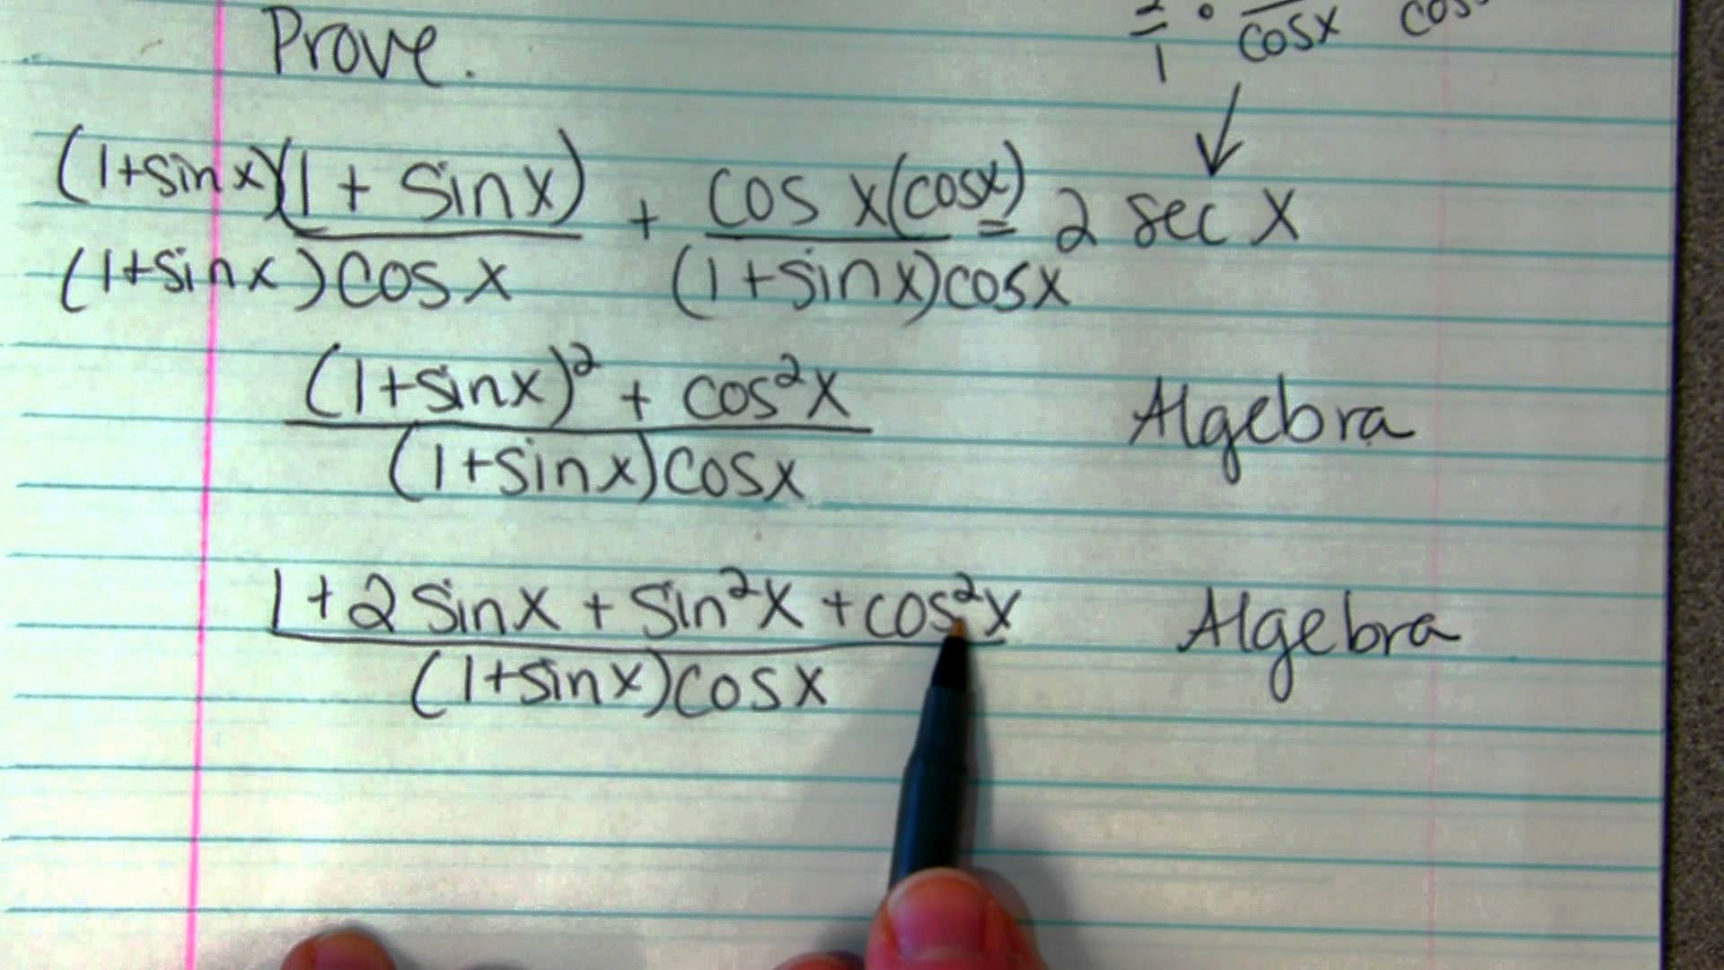 Prove.
2/1 · /cosx cos
(1+sin x)(1 + sin x) / (1+sinx)cos x + cos x(cosx) / (1+sin x)cosx = 2 sec x
(1+sinx)² + cos²x / (1+sinx)cosx Algebra
1+2 sinx + sin²x + cos²x / (1+sinx)cosx Algebra